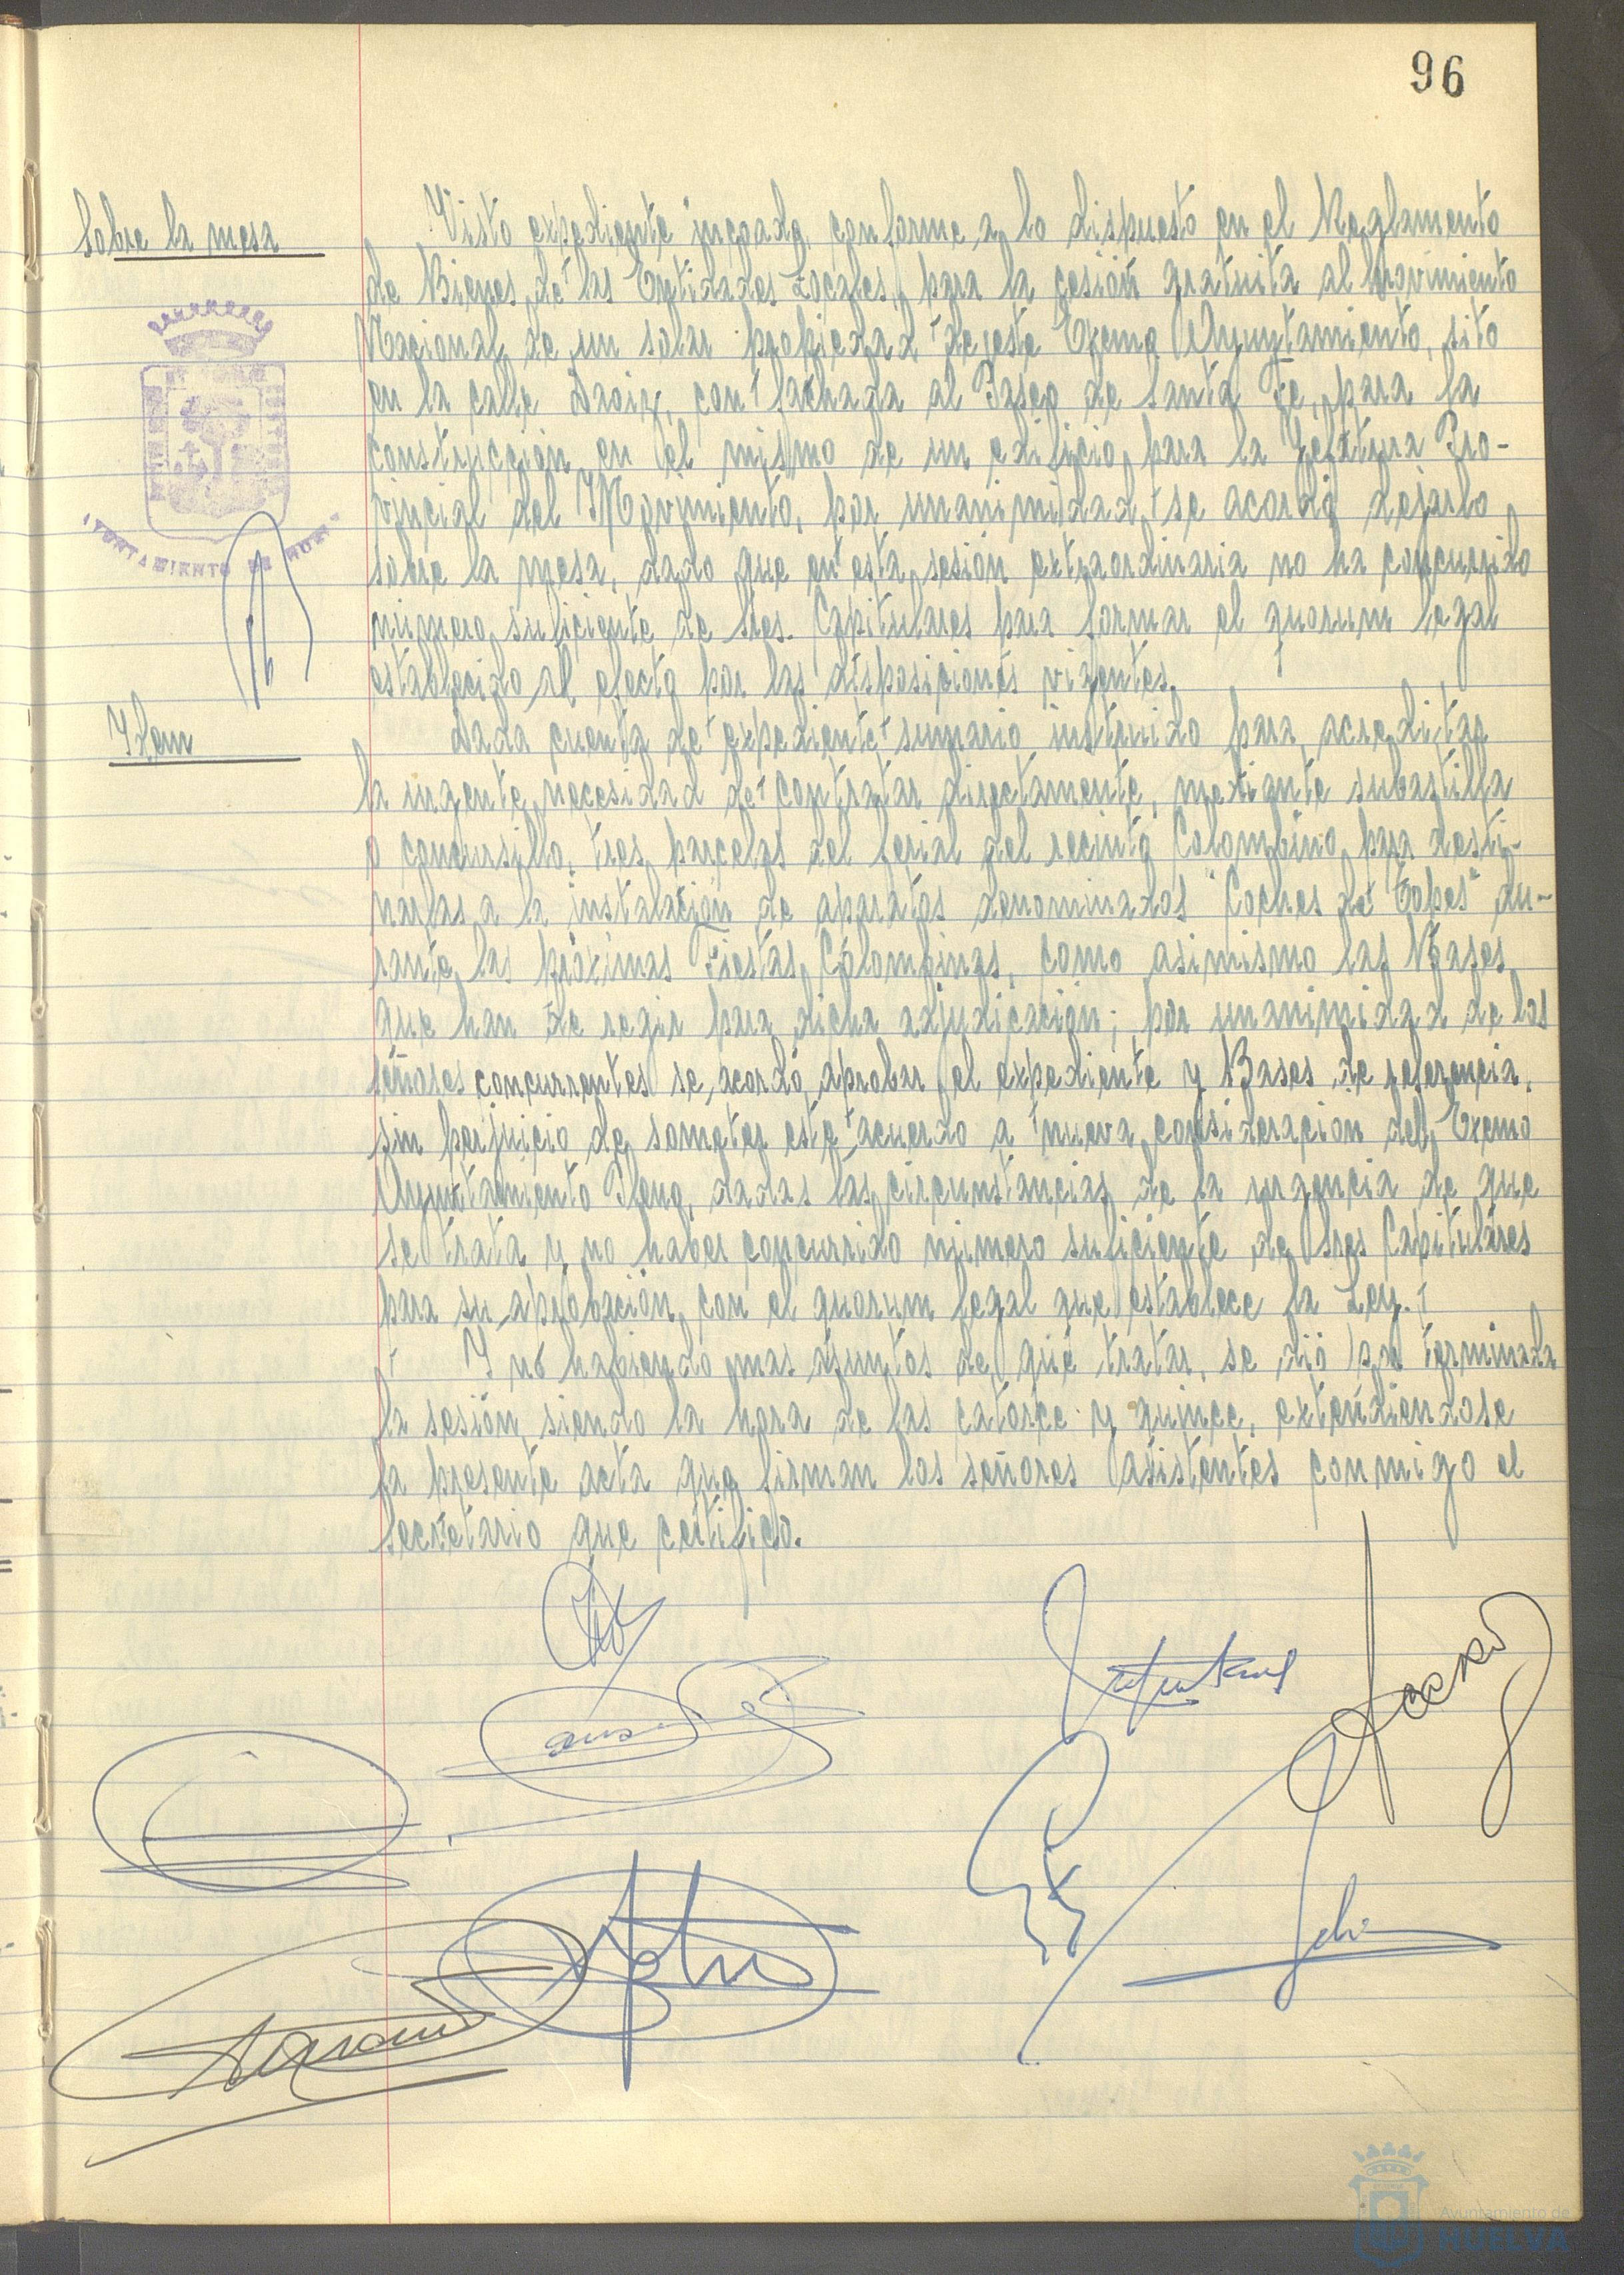 96
Sobre la mesa
Visto expediente incoado, conforme a lo dispuesto en el Reglamento
de Bienes de las Entidades Locales, para la cesión gratuita al Movimiento
Nacional de un solar propiedad de este Excmo Ayuntamiento, sito
en la calle Daoiz, con fachada al Paseo de Santa Fe, para la
construcción en el mismo de un edificio para la Jefatura Pro-
vincial del Movimiento, por unanimidad se acordó dejarlo
sobre la mesa, dado que en esta sesión extraordinaria no ha concurrido
número suficiente de Sres. Capitulares para formar el quorum legal
establecido al efecto por las disposiciones vigentes.
AYUNTAMIENTO DE HUELVA
Idem
Dada cuenta de expediente sumario instruido para acreditar
la urgente necesidad de contratar directamente, mediante subastilla
o concursillo, tres parcelas del ferial del recinto Colombino para desti-
narlas a la instalación de aparatos denominados "Coches de Topes" du-
rante las próximas Fiestas Colombinas, como asimismo las Bases
que han de regir para dicha adjudicación; por unanimidad de los
señores concurrentes se acordó aprobar el expediente y Bases de referencia,
sin perjuicio de someter este acuerdo a nueva consideración del Excmo
Ayuntamiento Pleno, dadas las circunstancias de la urgencia de que
se trata y no haber concurrido número suficiente de Sres Capitulares
para su aprobación con el quorum legal que establece la Ley.
Y no habiendo mas asuntos de que tratar, se dió por terminada
la sesión, siendo la hora de las catorce y quince, extendiendose
la presente acta que firman los señores asistentes conmigo el
Secretario que certifico.
Ayuntamiento de
HUELVA